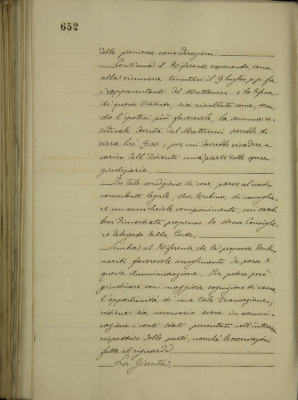 652
delle premesse considerazioni.
Continua il Referente esponendo come
alla riunione tenutasi il 9 luglio p.p. fra
i rappresentanti del Matteucci e la difesa
di questo Istituto, sia risultato come, secondo
l'ipotesi più favorevole, la somma re-
siduale dovuta dal Matteucci sarebbe di
circa lire 900, per cui dovrebbe ricadere a
carico dell'Istituto una parte delle spese
giudiziarie.
In tale condizione di cose, parve al nostro
consulente legale, di consiglia-
re un amichevole componimento, cui sareb-
besi dimostrato propenso lo stesso Consiglie-
re delegato della Corte.
Sembra al Referente che la proposta
meriti favorevole accoglimento da parte di
questa Amministrazione. Per potere però
giudicare con maggiore cognizione di causa
l'opportunità di una tale transazione,
ritiene sia necessario avere in comuni-
cazione i conti stati presentati nell'interesse
rispettivo delle parti, nonché le osservazioni
fatte al riguardo.
La Giunta